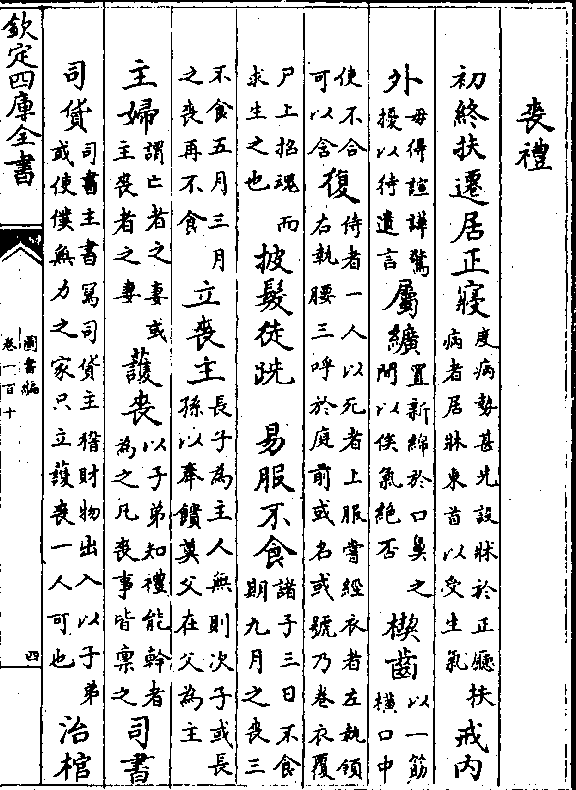 喪禮
初終扶遷居正寢度病勢甚先設牀於正廳扶病者居牀東首以受生氣戒内
外毋得諠譁驚擾以待遺言屬纊置新綿於口鼻之間以俟氣絶否楔齒以一筯橫口中
使不合可以含復侍者一人以死者上服嘗經衣者左執領右執腰三呼於庭前或名或號乃卷衣覆
尸上招魂而求生之也披髮徒跣易服不食諸子三日不食期九月之喪三
不食五月三月之喪再不食立喪主長子為主人無則次子或長孫以奉饋奠父在父為主
主婦謂亡者之妻或主喪者之妻護喪以子弟知禮能幹者為之凡喪事皆禀之司書
司貨司書主書寫司貨主稽財物出入以子弟或使僕無力之家只立護喪一人可也治棺
欽定四庫全書
圖書編
卷一百十
四